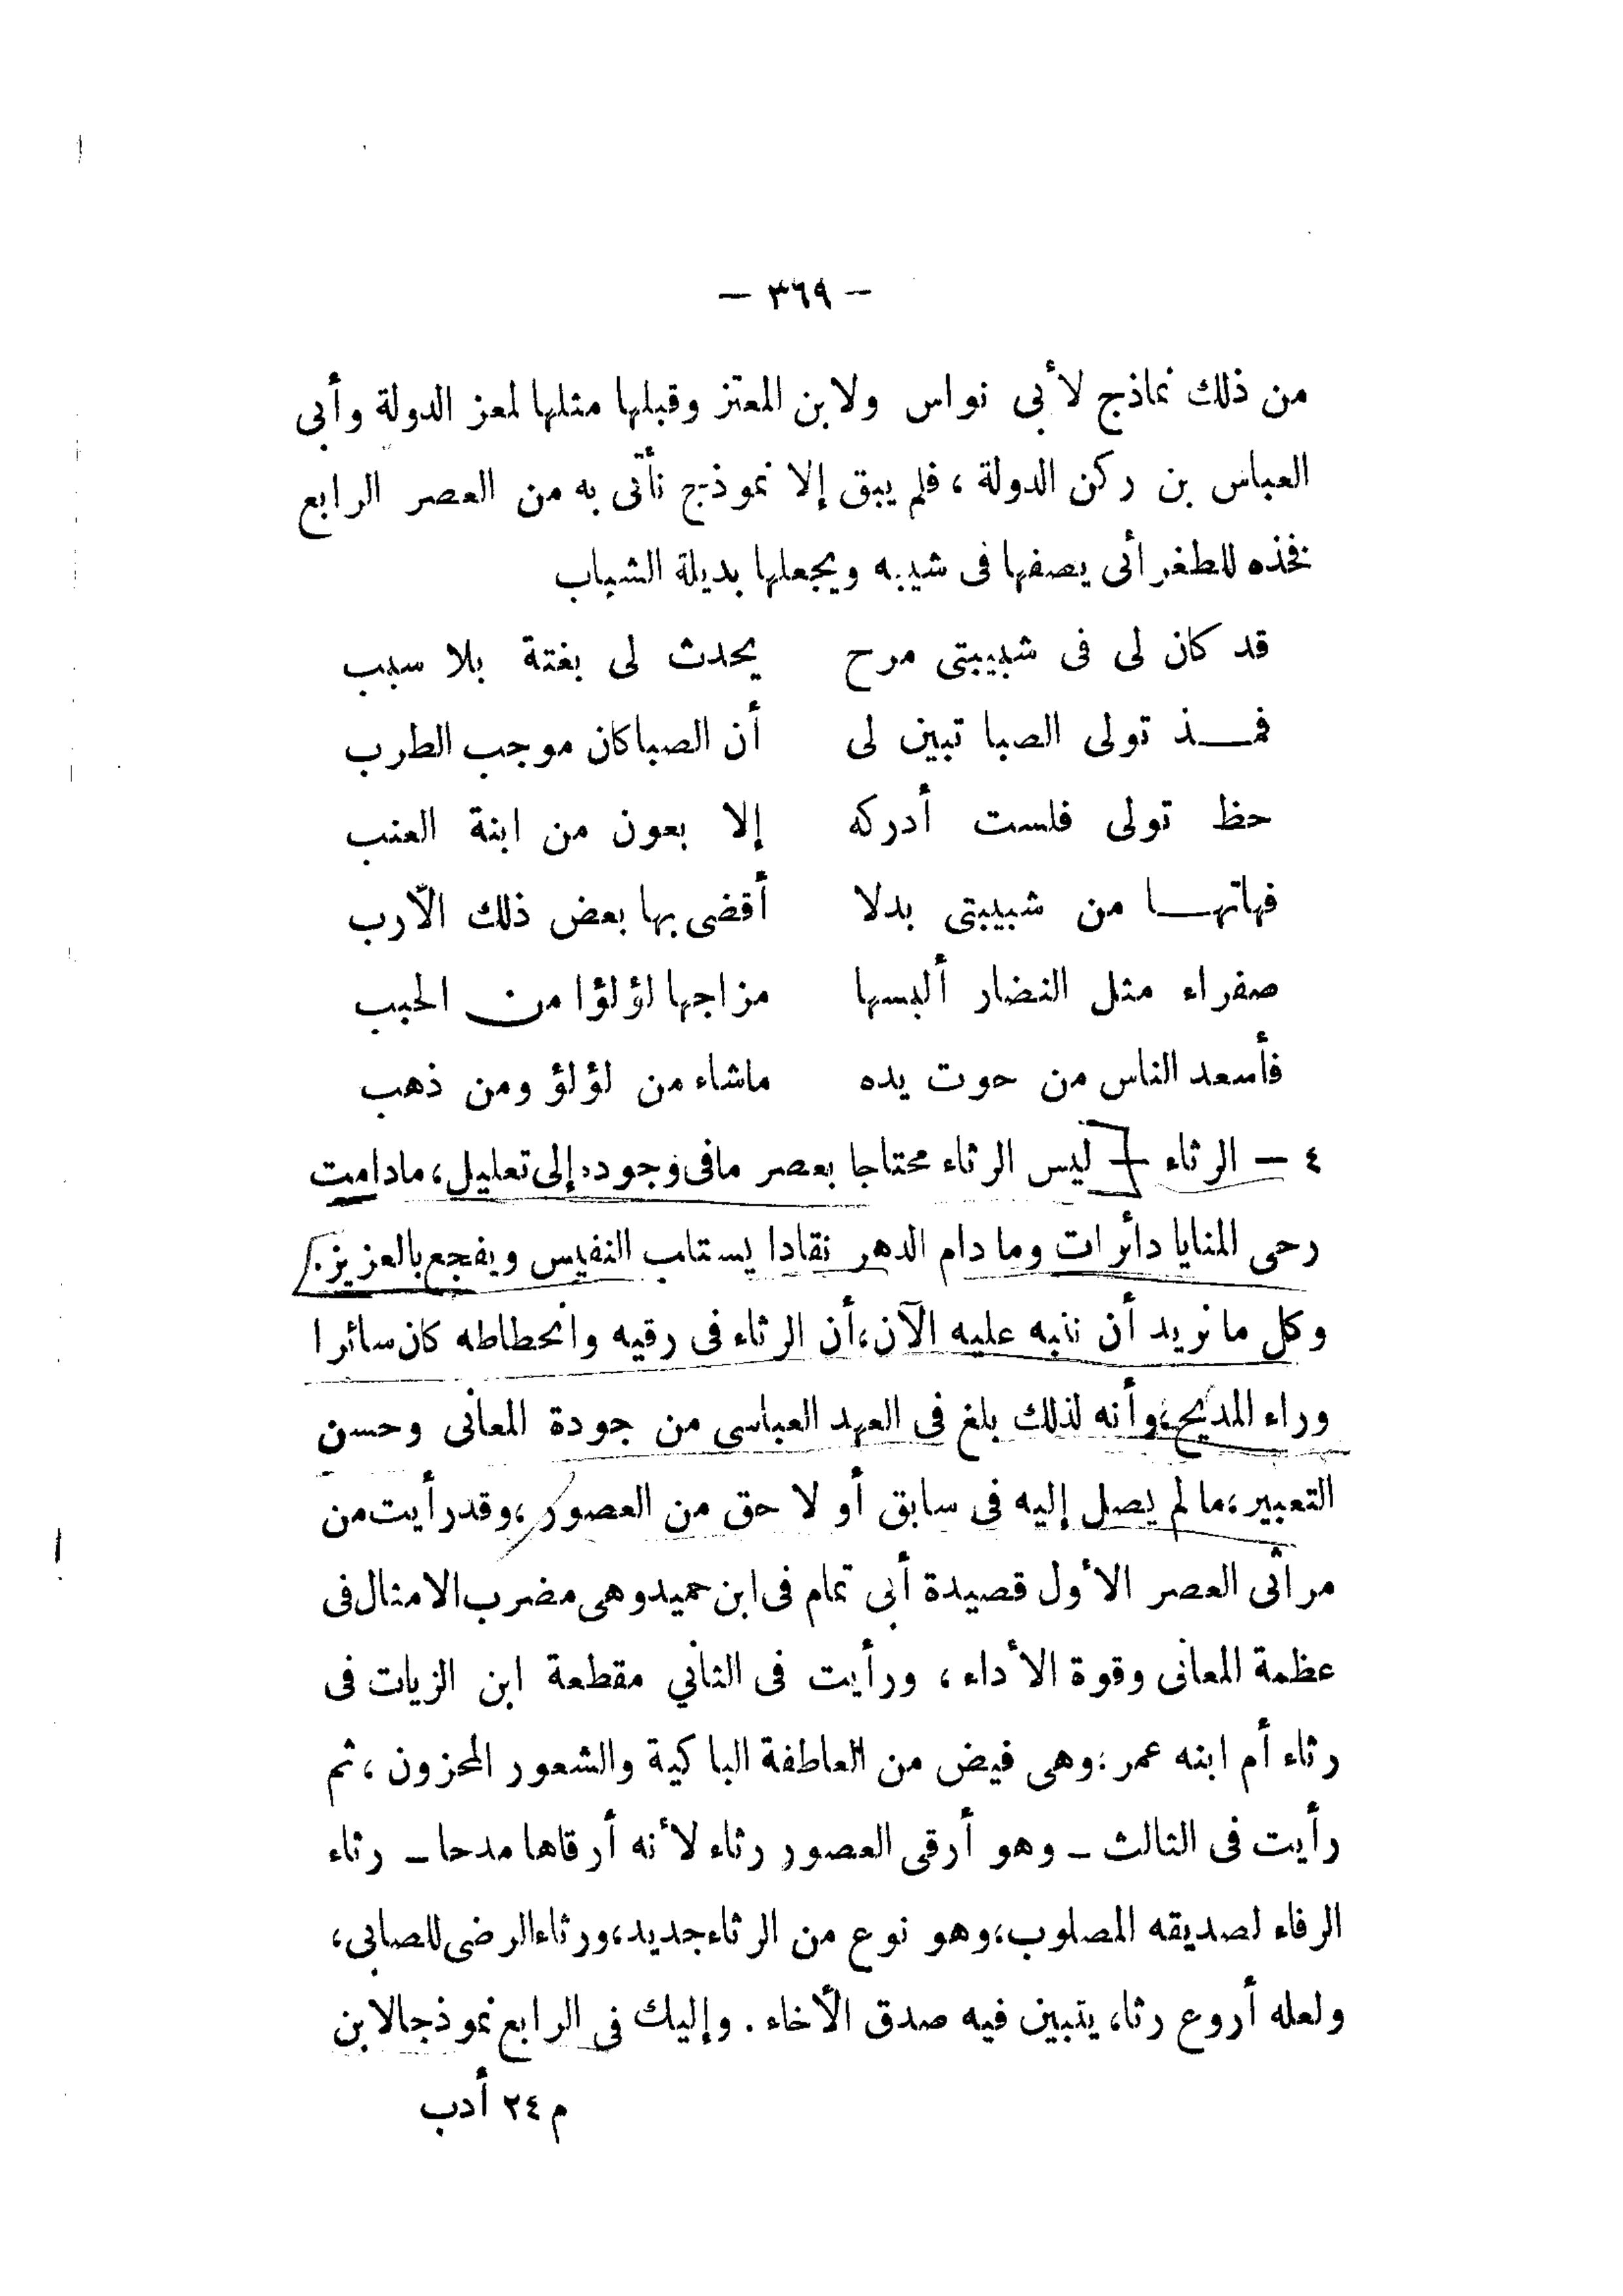 — ٣٦٩ —
من ذلك نماذج لأبى نواس ولابن المعتز وقبلها مثلها لمعز الدولة وأبى
العباس بن ركن الدولة ، فلم يبق إلا نموذج نأتى به من العصر الرابع
فخذه للطغرأئى يصفها فى شيبه ويجعلها بديلة الشباب
قد كان لى فى شبيبتى مرح يحدث لى بغتة بلا سبب
فمـــذ تولى الصبا تبين لى أن الصبا كان موجب الطرب
حظ تولى فلست أدركه إلا بعون من ابنة العنب
فهاتهـــا من شبيبتى بدلا أقضى بها بعض ذلك الأرب
صفراء مثل النضار ألبسها مزاجها لؤلؤا من الحبب
فأسعد الناس من حوت يده ماشاء من لؤلؤ ومن ذهب
٤ — الرثاء — ليس الرثاء محتاجا بعصر مافى وجوده إلى تعليل ، مادامت
رحى المنايا دأئرات وما دام الدهر نقادا يستلب النفيس ويفجع بالعزيز .
وكل ما نريد أن ننبه عليه الآن ، أن الرثاء فى رقيه وانحطاطه كان سائرا
وراء المديح ، وأنه لذلك بلغ فى العهد العباسى من جودة المعانى وحسن
التعبير ، ما لم يصل إليه فى سابق أو لا حق من العصور ، وقد رأيت من
مراثى العصر الأول قصيدة أبى تمام فى ابن حميد وهى مضرب الامثال فى
عظمة المعانى وقوة الأداء ، ورأيت فى الثاني مقطعة ابن الزيات فى
رثاء أم ابنه عمر : وهى فيض من العاطفة الباكية والشعور المحزون ، ثم
رأيت فى الثالث ــ وهو أرقى العصور رثاء لأنه أرقاها مدحا ــ رثاء
الرفاء لصديقه المصلوب ، وهو نوع من الرثاء جديد ، ورثاء الرضى للصابى ،
ولعله أروع رثاء يتبين فيه صدق الأخاء . وإليك فى الرابع نموذجا لابن
م ٢٤ أدب